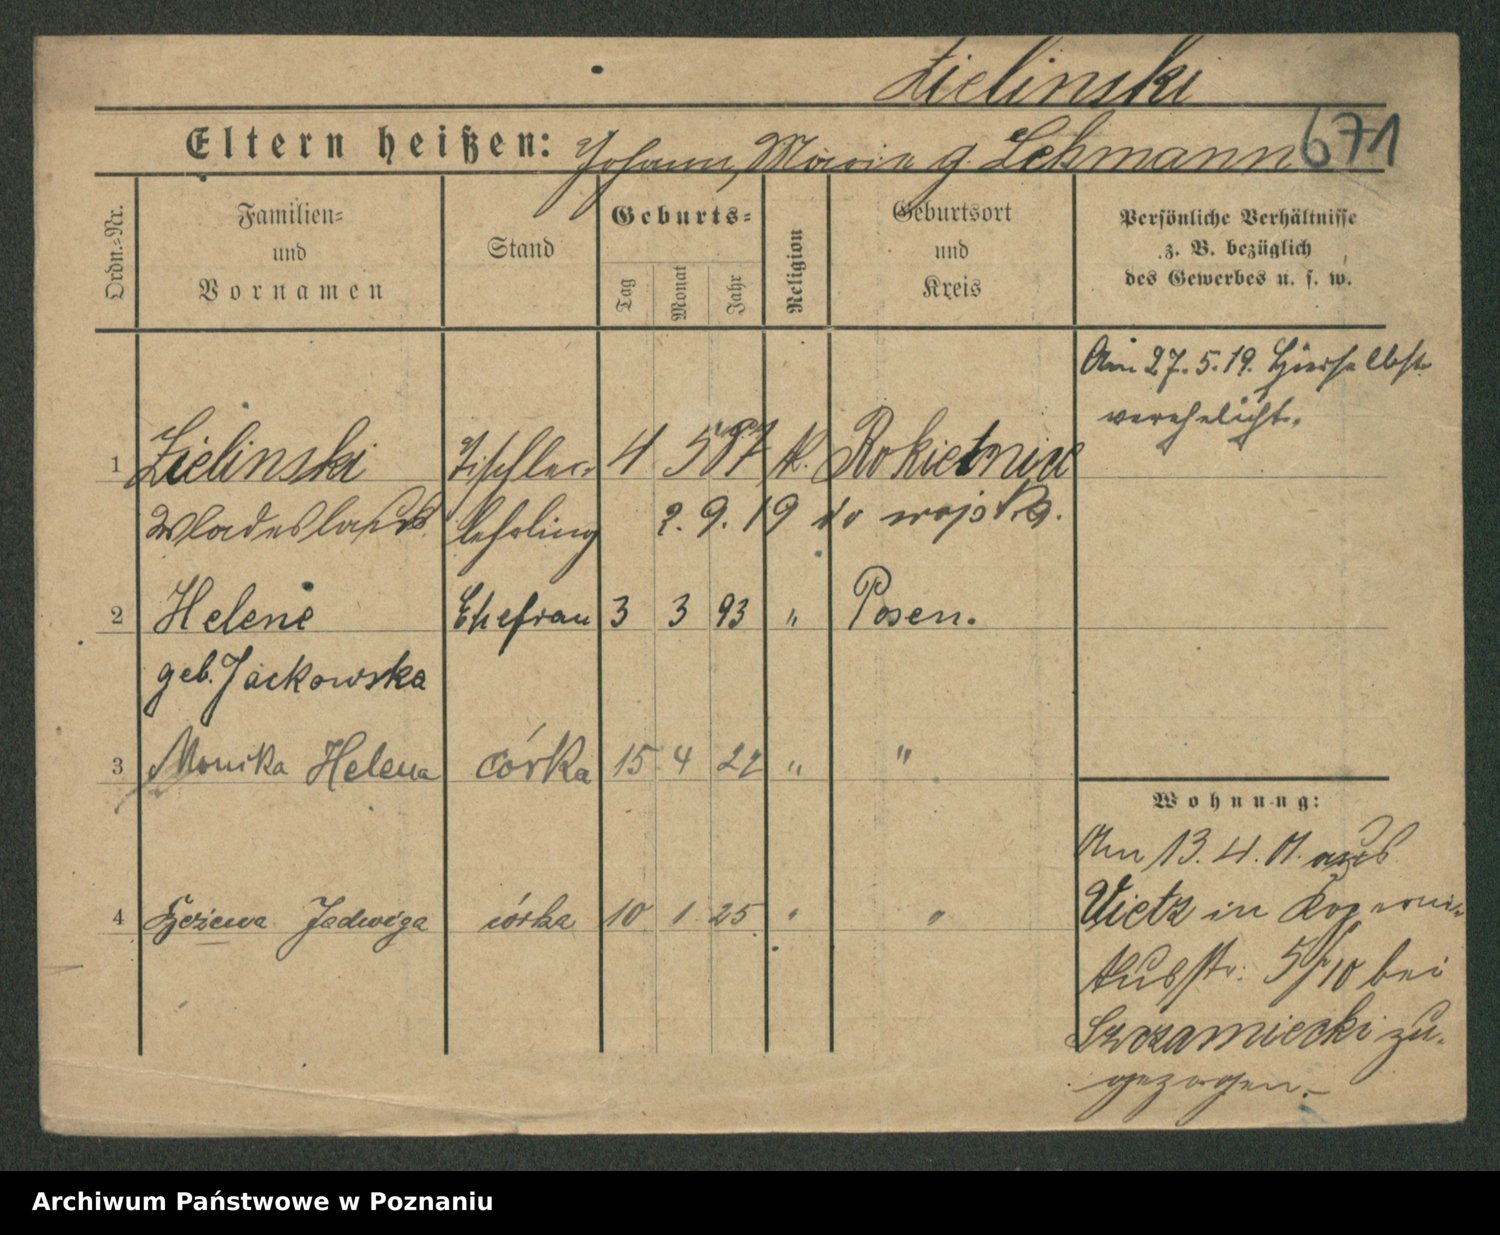 Zielinski
Eltern heißen: Johann, Maria g. Lehmann 671
Ordn.=Nr.
Familien=
und
Vornamen
Stand
Geburts=
Tag
Monat
Jahr
Religion
Geburtsort
und
Kreis
Persönliche Verhältnisse
z. B. bezüglich
des Gewerbes u. s. w.
Am 27.5.19. hierselbst
verehelicht.
1 Zielinski Tischler 4 5 87 k. Rokietnice
Wladeslaus lehrling 2.9.19 do wojska.
2 Helene Ehefrau 3 3 93 " Posen.
geb. Jackowska
3 Monika Helena córka 15 4 22 " "
4 Jadwiga córka 10 1 25 " "
Wohnung:
Am 13.4.01. aus
Vietz in Koperni-
kusstr. 5/10 bei
Szczaniecki zu-
gezogen.
Archiwum Państwowe w Poznaniu